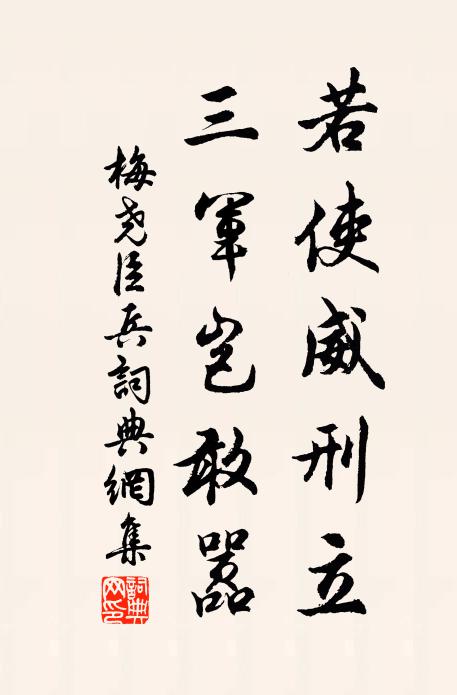 若使威刑立
三軍豈敢嚣
梅尧臣兵詞典網集
詞典網印